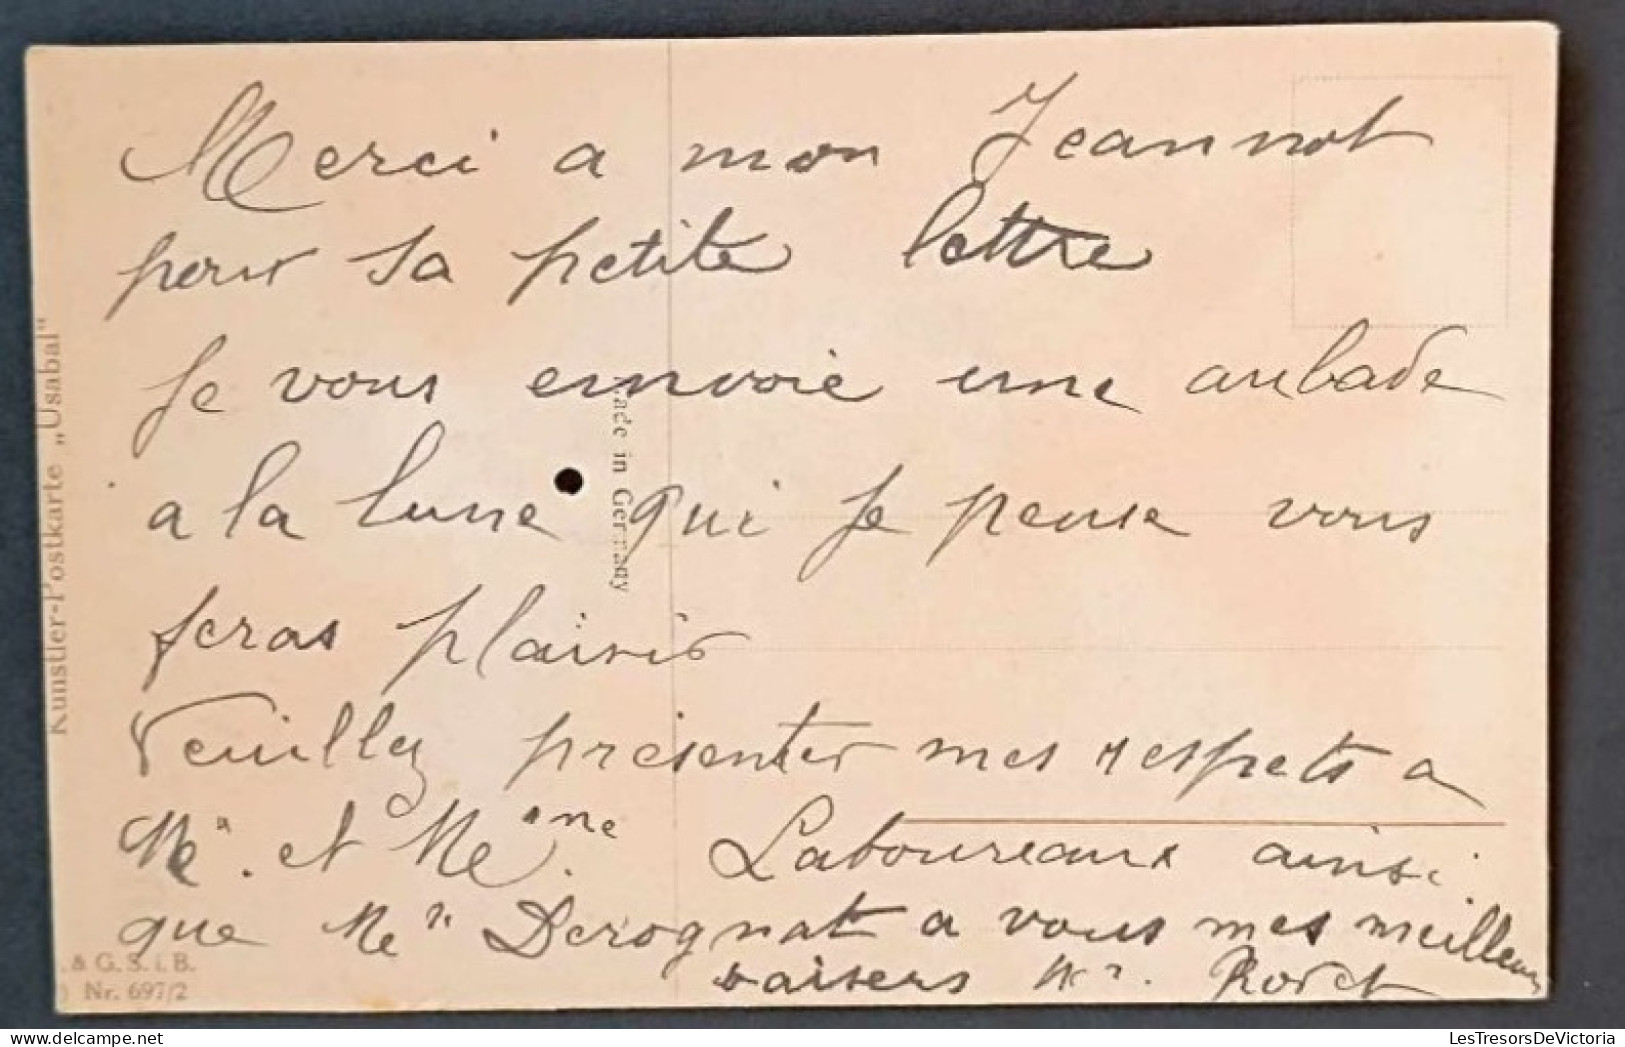 Merci a mon Jeannot
pour sa petite lettre
Je vous envoie une aubade
a la lune qui je pense vous
feras plaisir
Veuillez presenter mes respets a
Mr. et Mme. Laboureaux ainsi
que Mr Derognat a vous mes meilleurs
baisers
Kunstler-Postkarte „Usabal“
Made in Germany
. & G. S. i. B.
) Nr. 697/2
LesTresorsDeVictoria